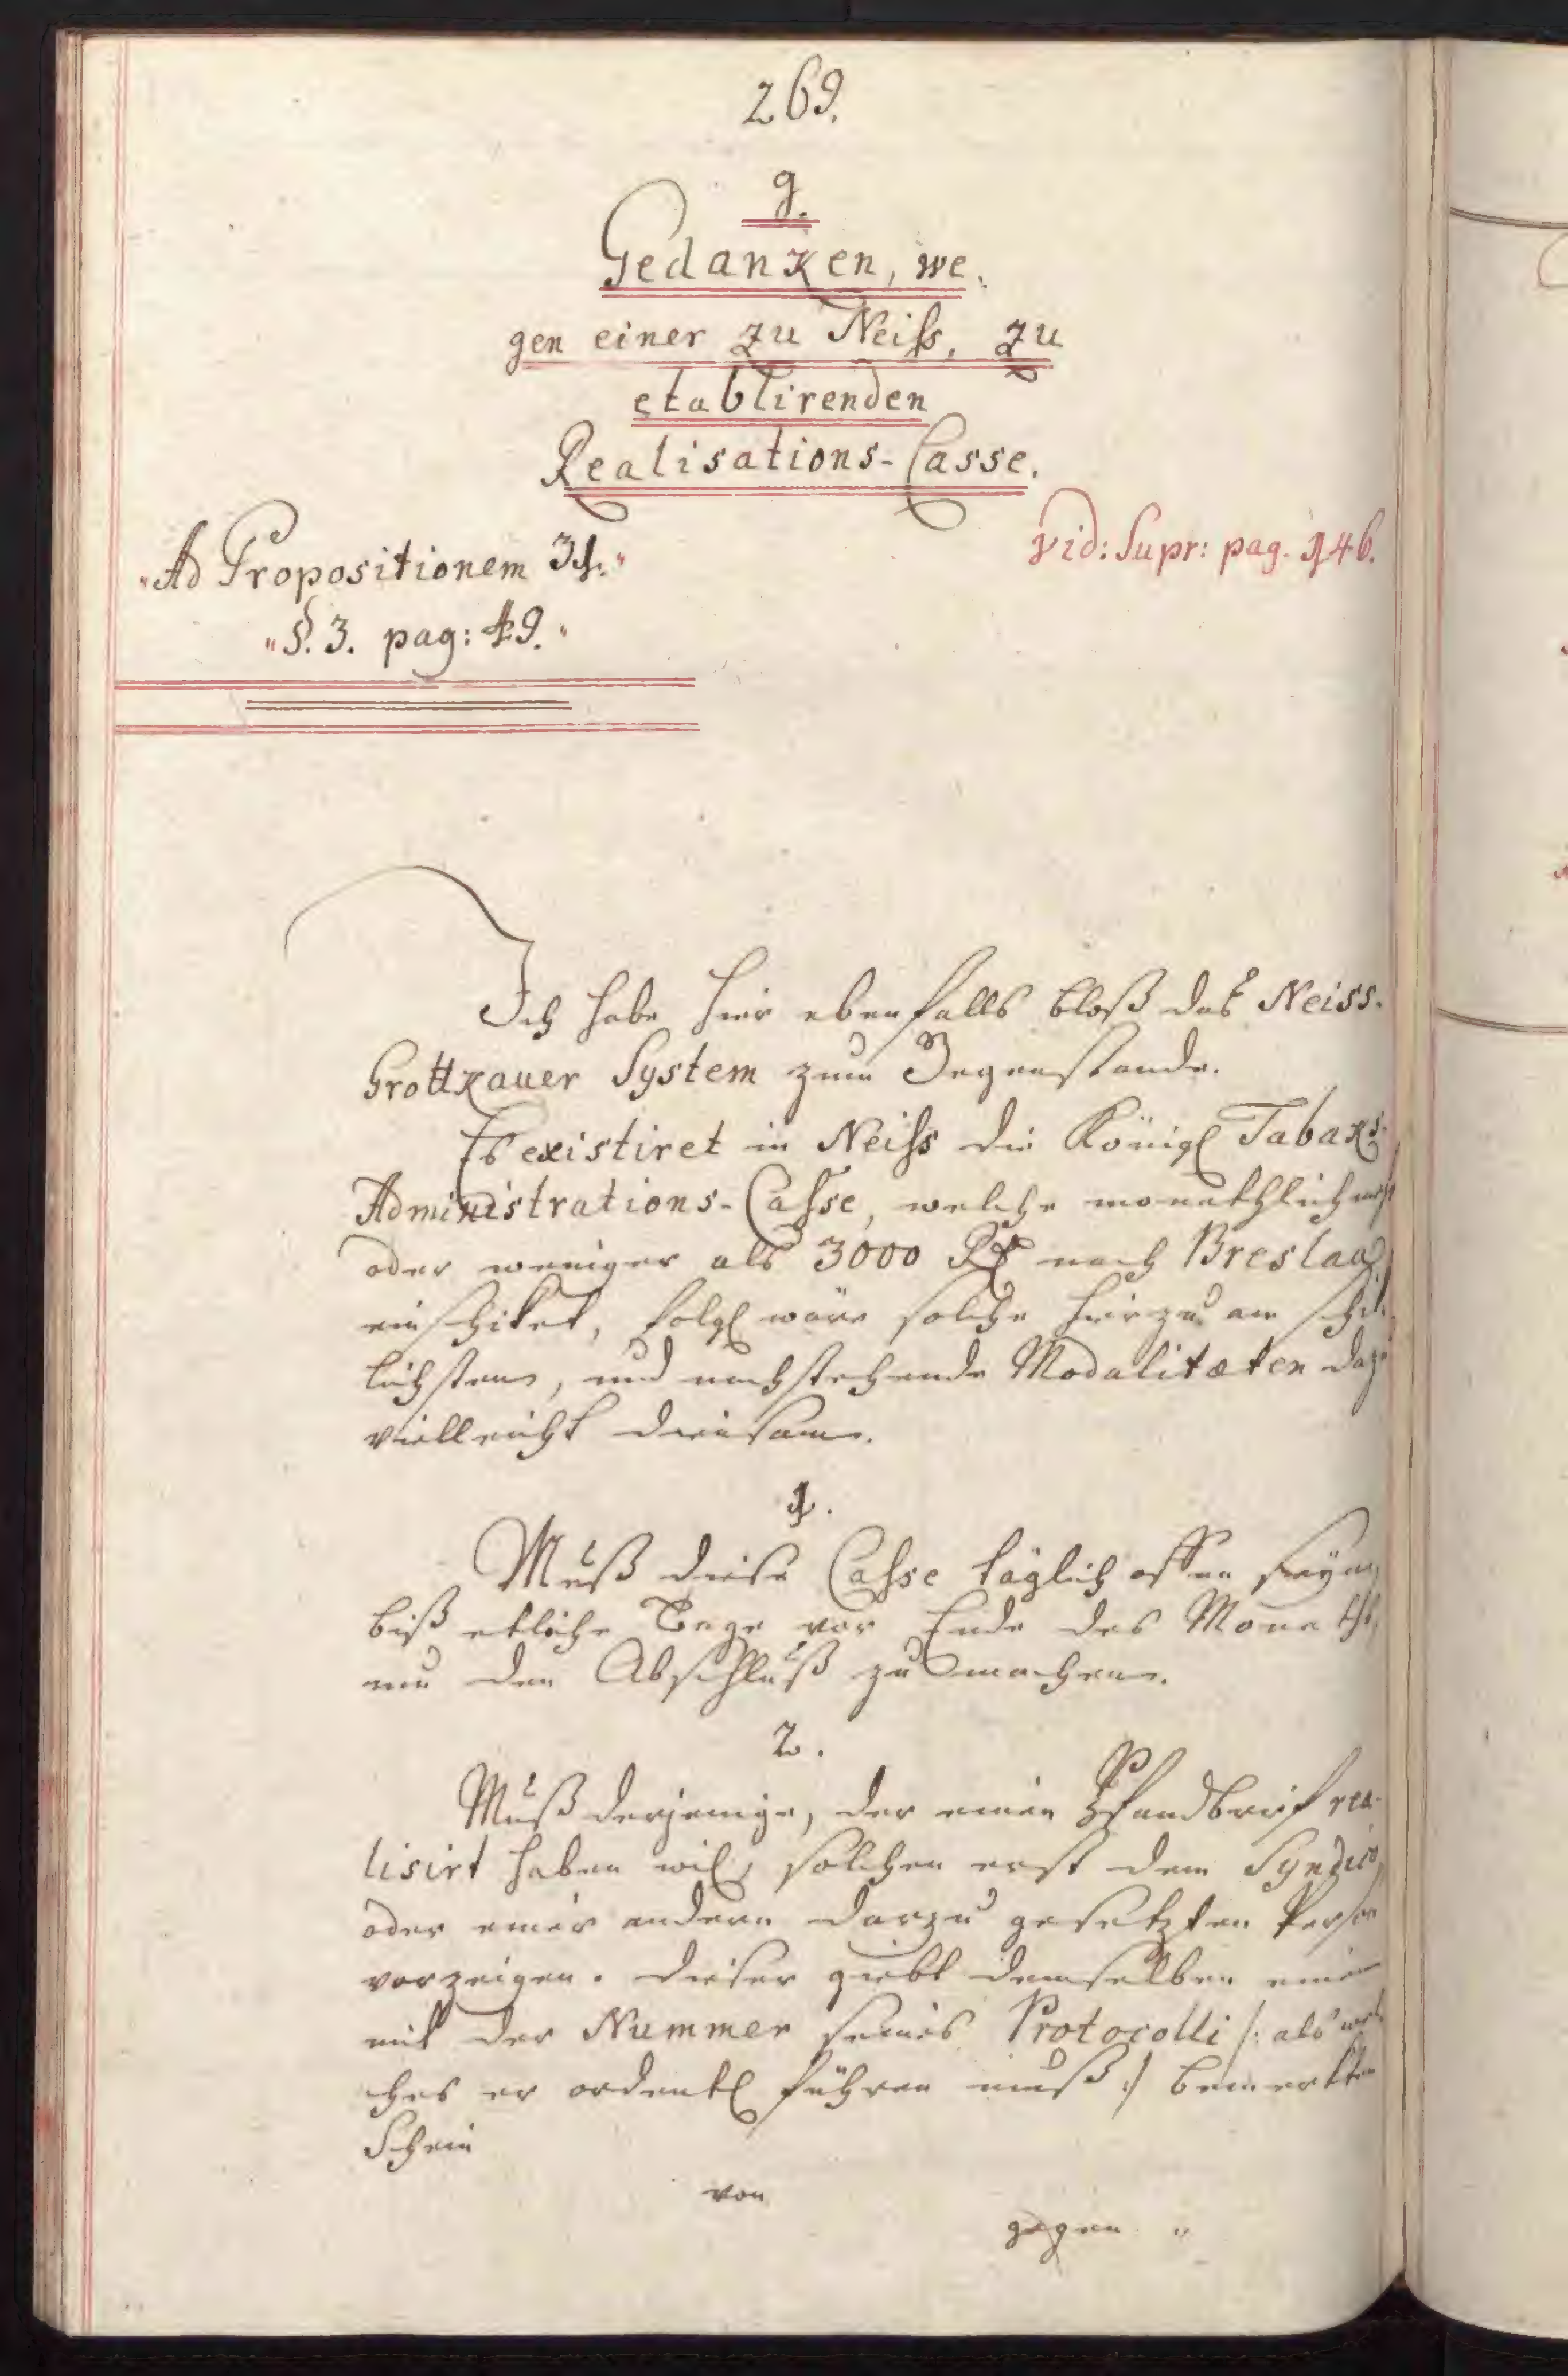 269.
g.
Gedanken, we-
gen einer zu Neiss, zu
etablirenden
Realisations-Casse.
vid: Supr: pag. 146.
"Ad Propositionem 31."
"§. 3. pag: 49."
Ich habe hier ebenfalls bloß das Neiss-
Grottkauer System zum Gegenstande.
Es existiret in Neiss die Königl Tabaks-
Administrations-Casse, welche monathlich
oder weniger als 3000 Rthl nach Breslau
einschiket, folgl wäre solche hierzu am schik-
lichsten, und nachstehende Modalitæten dazu
vielleicht diensam.
1.
Muß diese Casse täglich offen seyn,
biß etliche Tage vor Ende des Monaths,
um den Abschluß zu machen.
2.
Muß derjenige, der einen Pfandbrief rea-
lisirt haben wil, solchen erst dem Syndico
oder einer andern darzu gesetzten Person
vorzeigen. Dieser giebt demselben einen
mit der Nummer seines Protocolli /: als wel-
ches er ordentl führen muß :/ bemerkten
Schein
von
gegen "